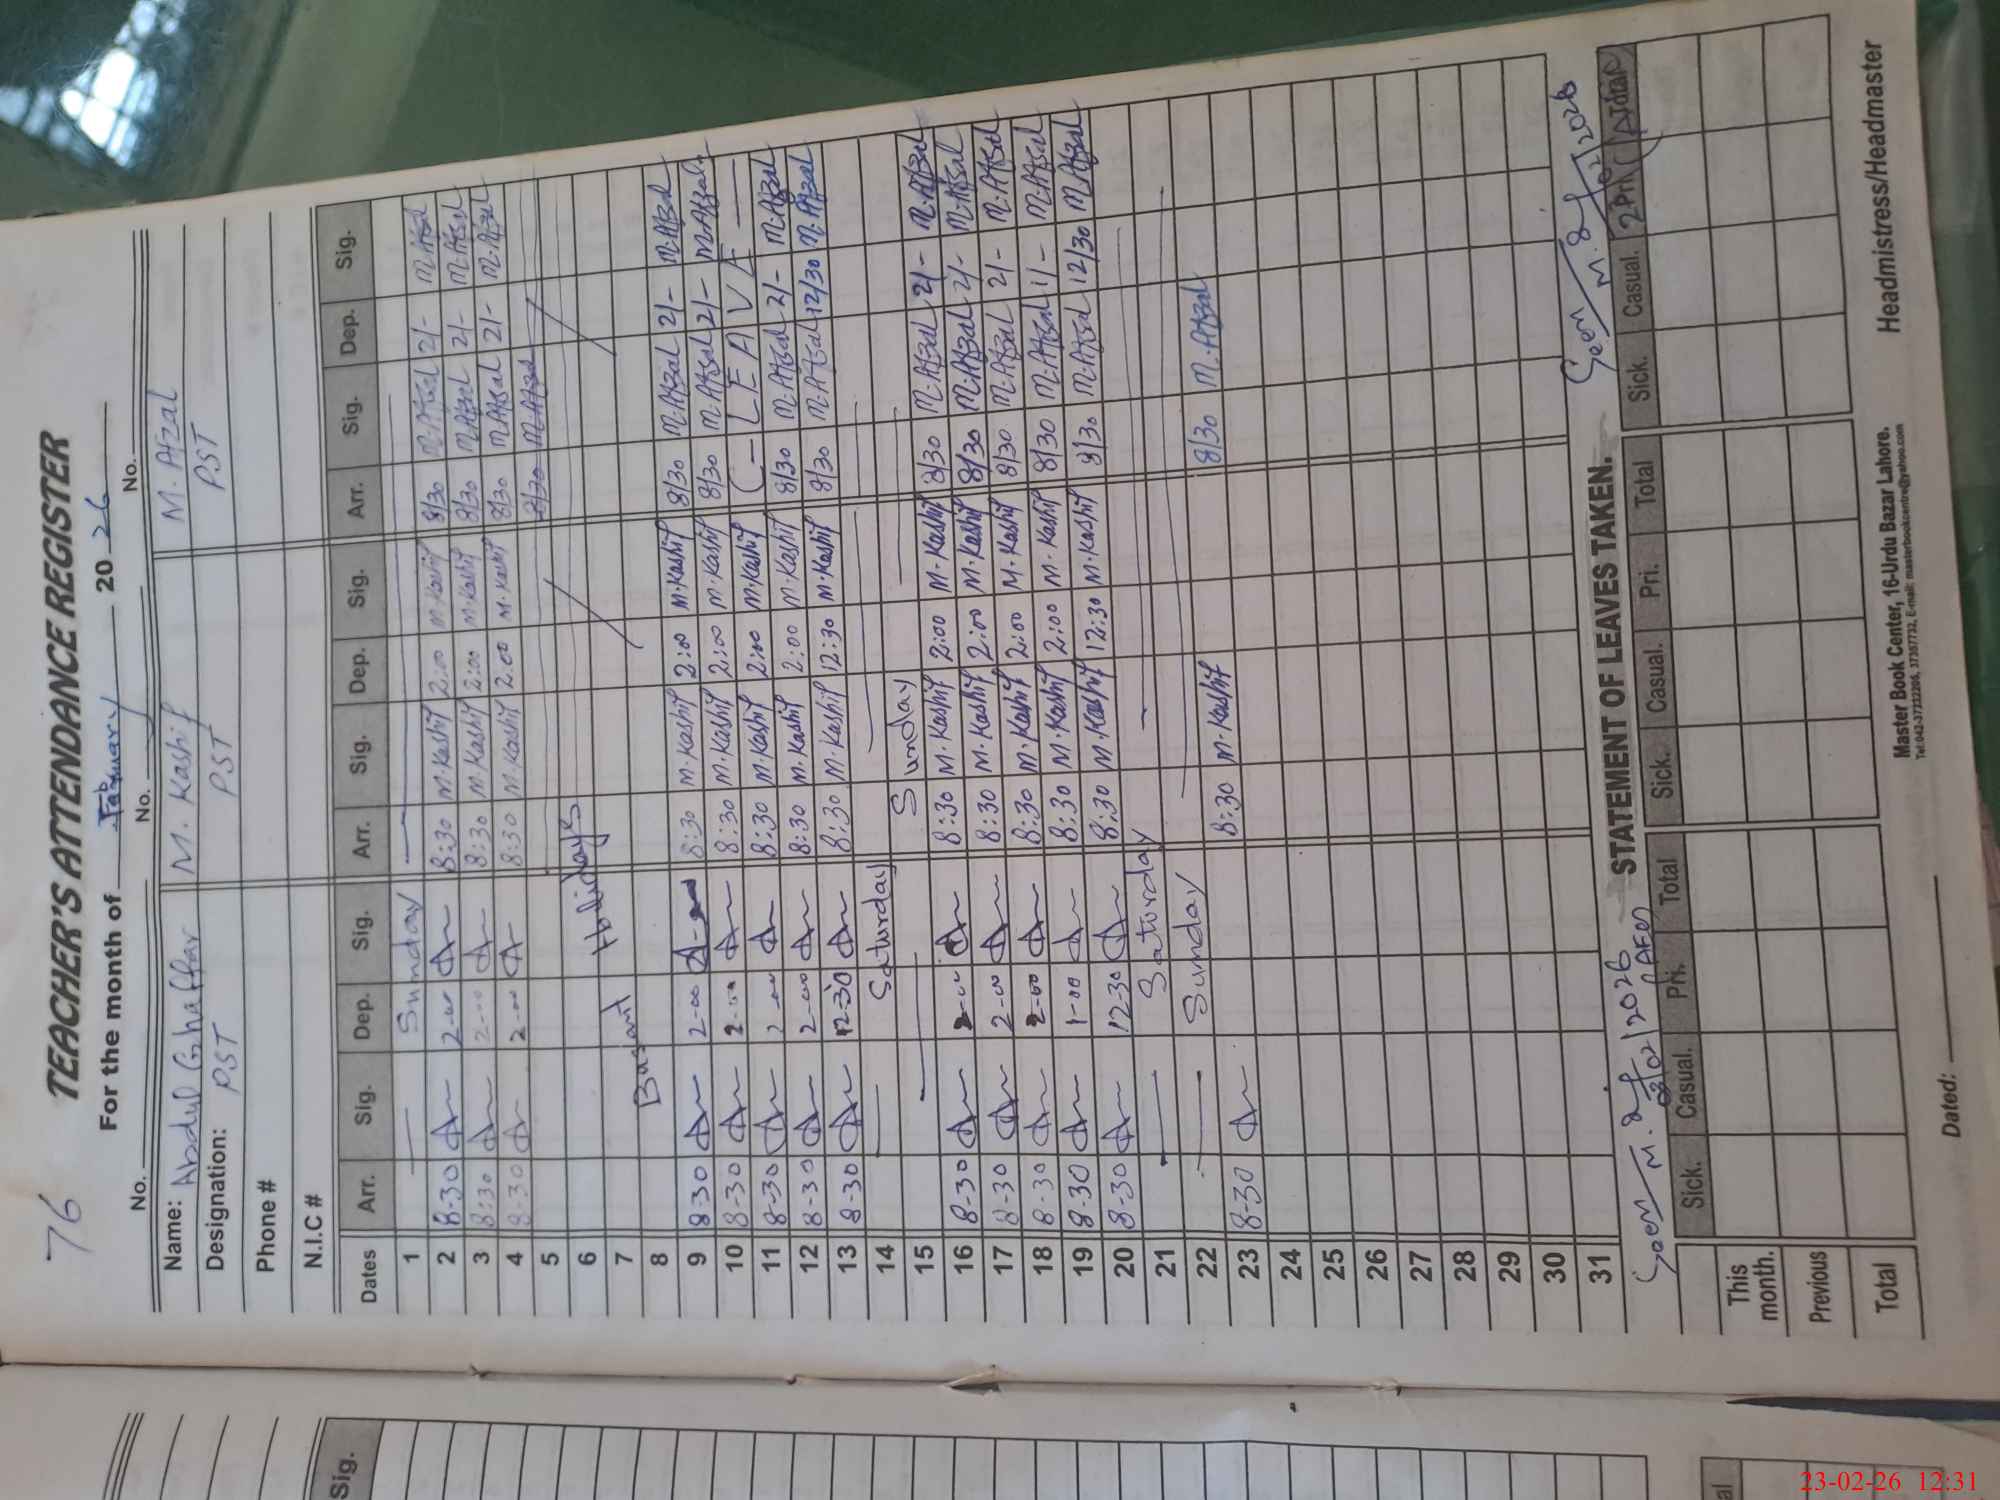 76
TEACHER'S ATTENDANCE REGISTER
For the month of February 20 26
No. No. No.
Name: Abdul Ghaffar M. Kashif M. Afzal
Designation: PST PST PST
Phone #
N.I.C #
Dates Arr. Sig. Dep. Sig. Arr. Sig. Dep. Sig. Arr. Sig. Dep. Sig.
1 Sunday
2 8-30 2-00 8:30 M.Kashif 2:00 M.Kashif 8/30 M.Afzal 2/- M.Afzal
3 8:30 2-00 8:30 M.Kashif 2:00 M.Kashif 8/30 M.Afzal 2/- M.Afzal
4 8-30 2-00 8:30 M.Kashif 2:00 M.Kashif 8/30 M.Afzal 2/- M.Afzal
5 8/30 M.Afzal
6 Holidays
7 Basant
8
9 8-30 2-00 8:30 M.Kashif 2:00 M.Kashif 8/30 M.Afzal 2/- M.Afzal
10 8-30 2-00 8:30 M.Kashif 2:00 M.Kashif 8/30 M.Afzal 2/- M.Afzal
11 8-30 2-00 8:30 M.Kashif 2:00 M.Kashif C-LEAVE
12 8-30 2-00 8:30 M.Kashif 2:00 M.Kashif 8/30 M.Afzal 2/- M.Afzal
13 8-30 12-30 8:30 M.Kashif 12:30 M.Kashif 8/30 M.Afzal 12/30 M.Afzal
14 Saturday
15 Sunday
16 8-30 2-00 8:30 M.Kashif 2:00 M.Kashif 8/30 M.Afzal 2/- M.Afzal
17 8-30 2-00 8:30 M.Kashif 2:00 M.Kashif 8/30 M.Afzal 2/- M.Afzal
18 8-30 2-00 8:30 M.Kashif 2:00 M.Kashif 8/30 M.Afzal 2/- M.Afzal
19 8-30 1-00 8:30 M.Kashif 2:00 M.Kashif 8/30 M.Afzal 1/- M.Afzal
20 8-30 12-30 8:30 M.Kashif 12:30 M.Kashif 8/30 M.Afzal 12/30 M.Afzal
21 Saturday
22 Sunday
23 8-30 8:30 M.Kashif 8/30 M.Afzal
24
25
26
27
28
29
30
31
Seen
03/02/2026
AEO
Seen
2026
STATEMENT OF LEAVES TAKEN.
Sick. Casual. Pri. Total Sick. Casual. Pri. Total Sick. Casual. Pri. Total
This month.
Previous
Total
Dated:
Master Book Center, 16-Urdu Bazar Lahore.
Headmistress/Headmaster
Sig.
23-02-26 12:31